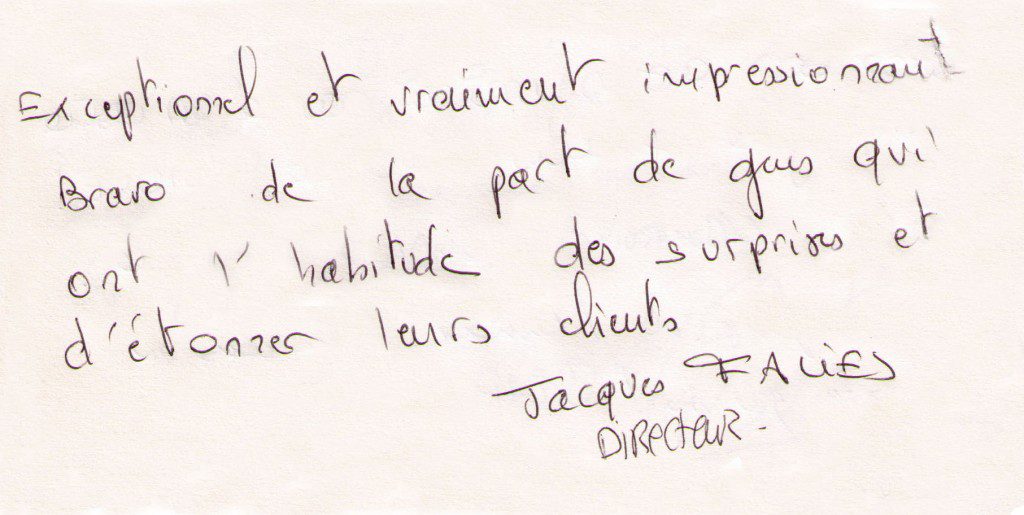 Exceptionnel et vraiment impressionnant
Bravo de la part de gens qui
ont l'habitude des surprises et
d'étonner leurs clients
Jacques FALIES
DIRECTEUR -